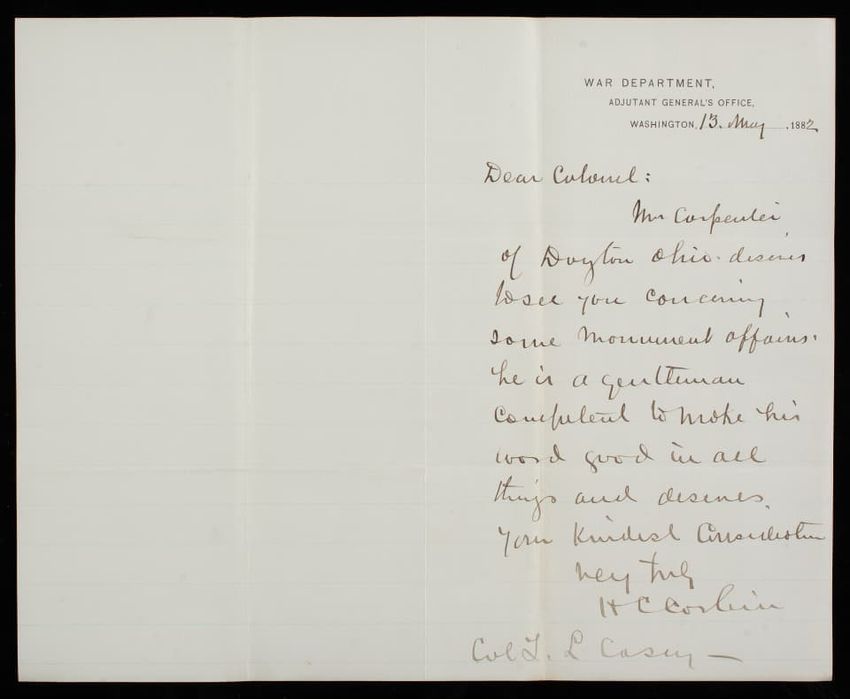 WAR DEPARTMENT,
ADJUTANT GENERAL'S OFFICE,
WASHINGTON, 13. May, 1882
Dear Colonel:
Mr Carpenter
of Dayton Ohio. desires
to see you concerning
some Monument affairs.
he is a gentleman
competent to make his
word good in all
things and deserves
your kindest consideration
very truly
H C Corbin
Col T. L Casey —